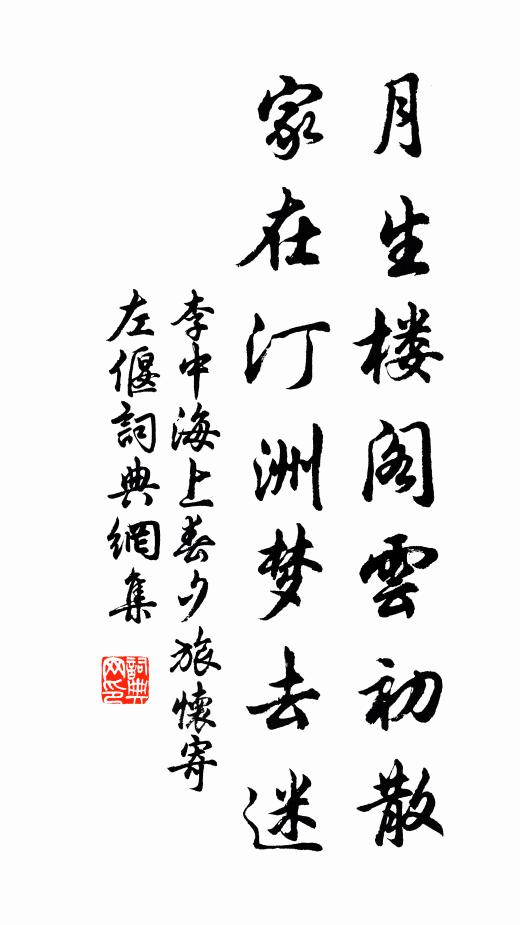 月生楼阁雲初散
家在汀洲梦去迷
李中海上春夕旅懷寄
左偃詞典網集
詞典
网印